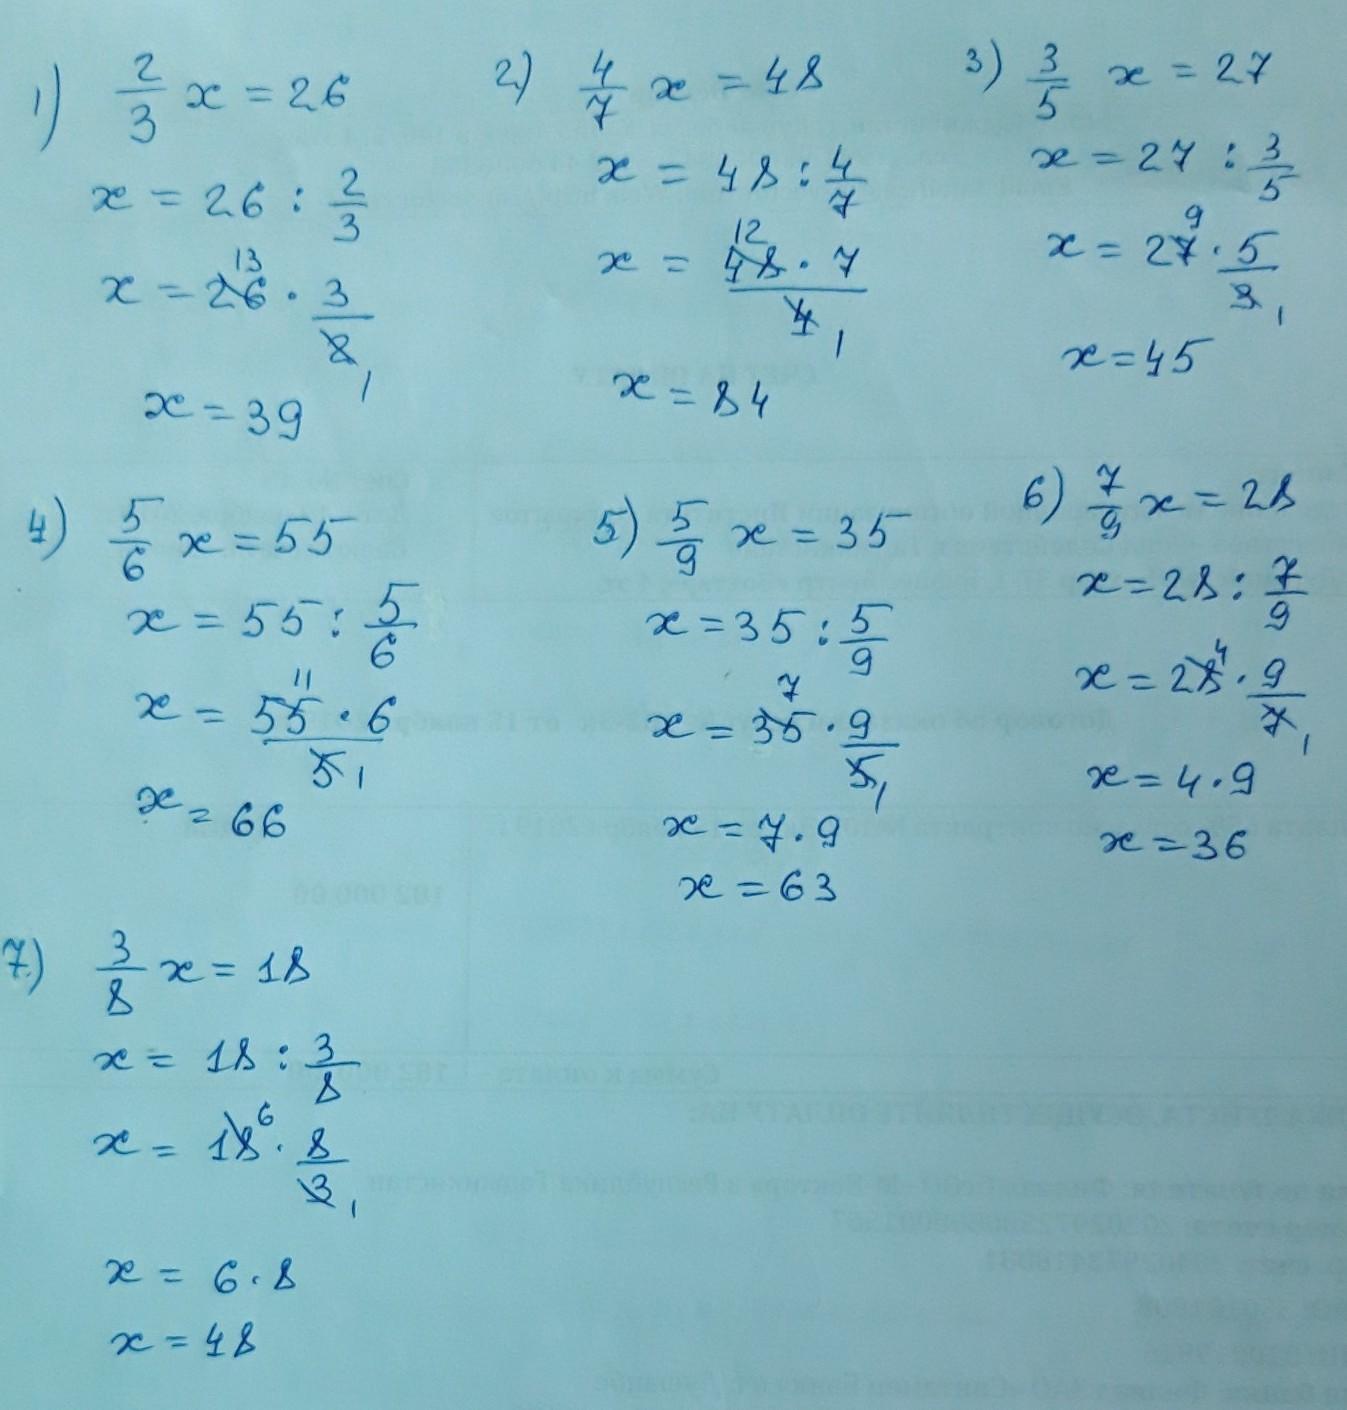 1) 2/3 x = 26
x = 26 : 2/3
13
x = 26 · 3/2 1
x = 39
2) 4/7 x = 48
x = 48 : 4/7
12
x = 48 · 7 / 4 1
x = 84
3) 3/5 x = 27
x = 27 : 3/5
9
x = 27 · 5/3 1
x = 45
4) 5/6 x = 55
x = 55 : 5/6
11
x = 55 · 6 / 5 1
x = 66
5) 5/9 x = 35
x = 35 : 5/9
7
x = 35 · 9/5 1
x = 7 · 9
x = 63
6) 7/9 x = 28
x = 28 : 7/9
4
x = 28 · 9/7 1
x = 4 · 9
x = 36
7) 3/8 x = 18
x = 18 : 3/8
6
x = 18 · 8/3 1
x = 6 · 8
x = 48